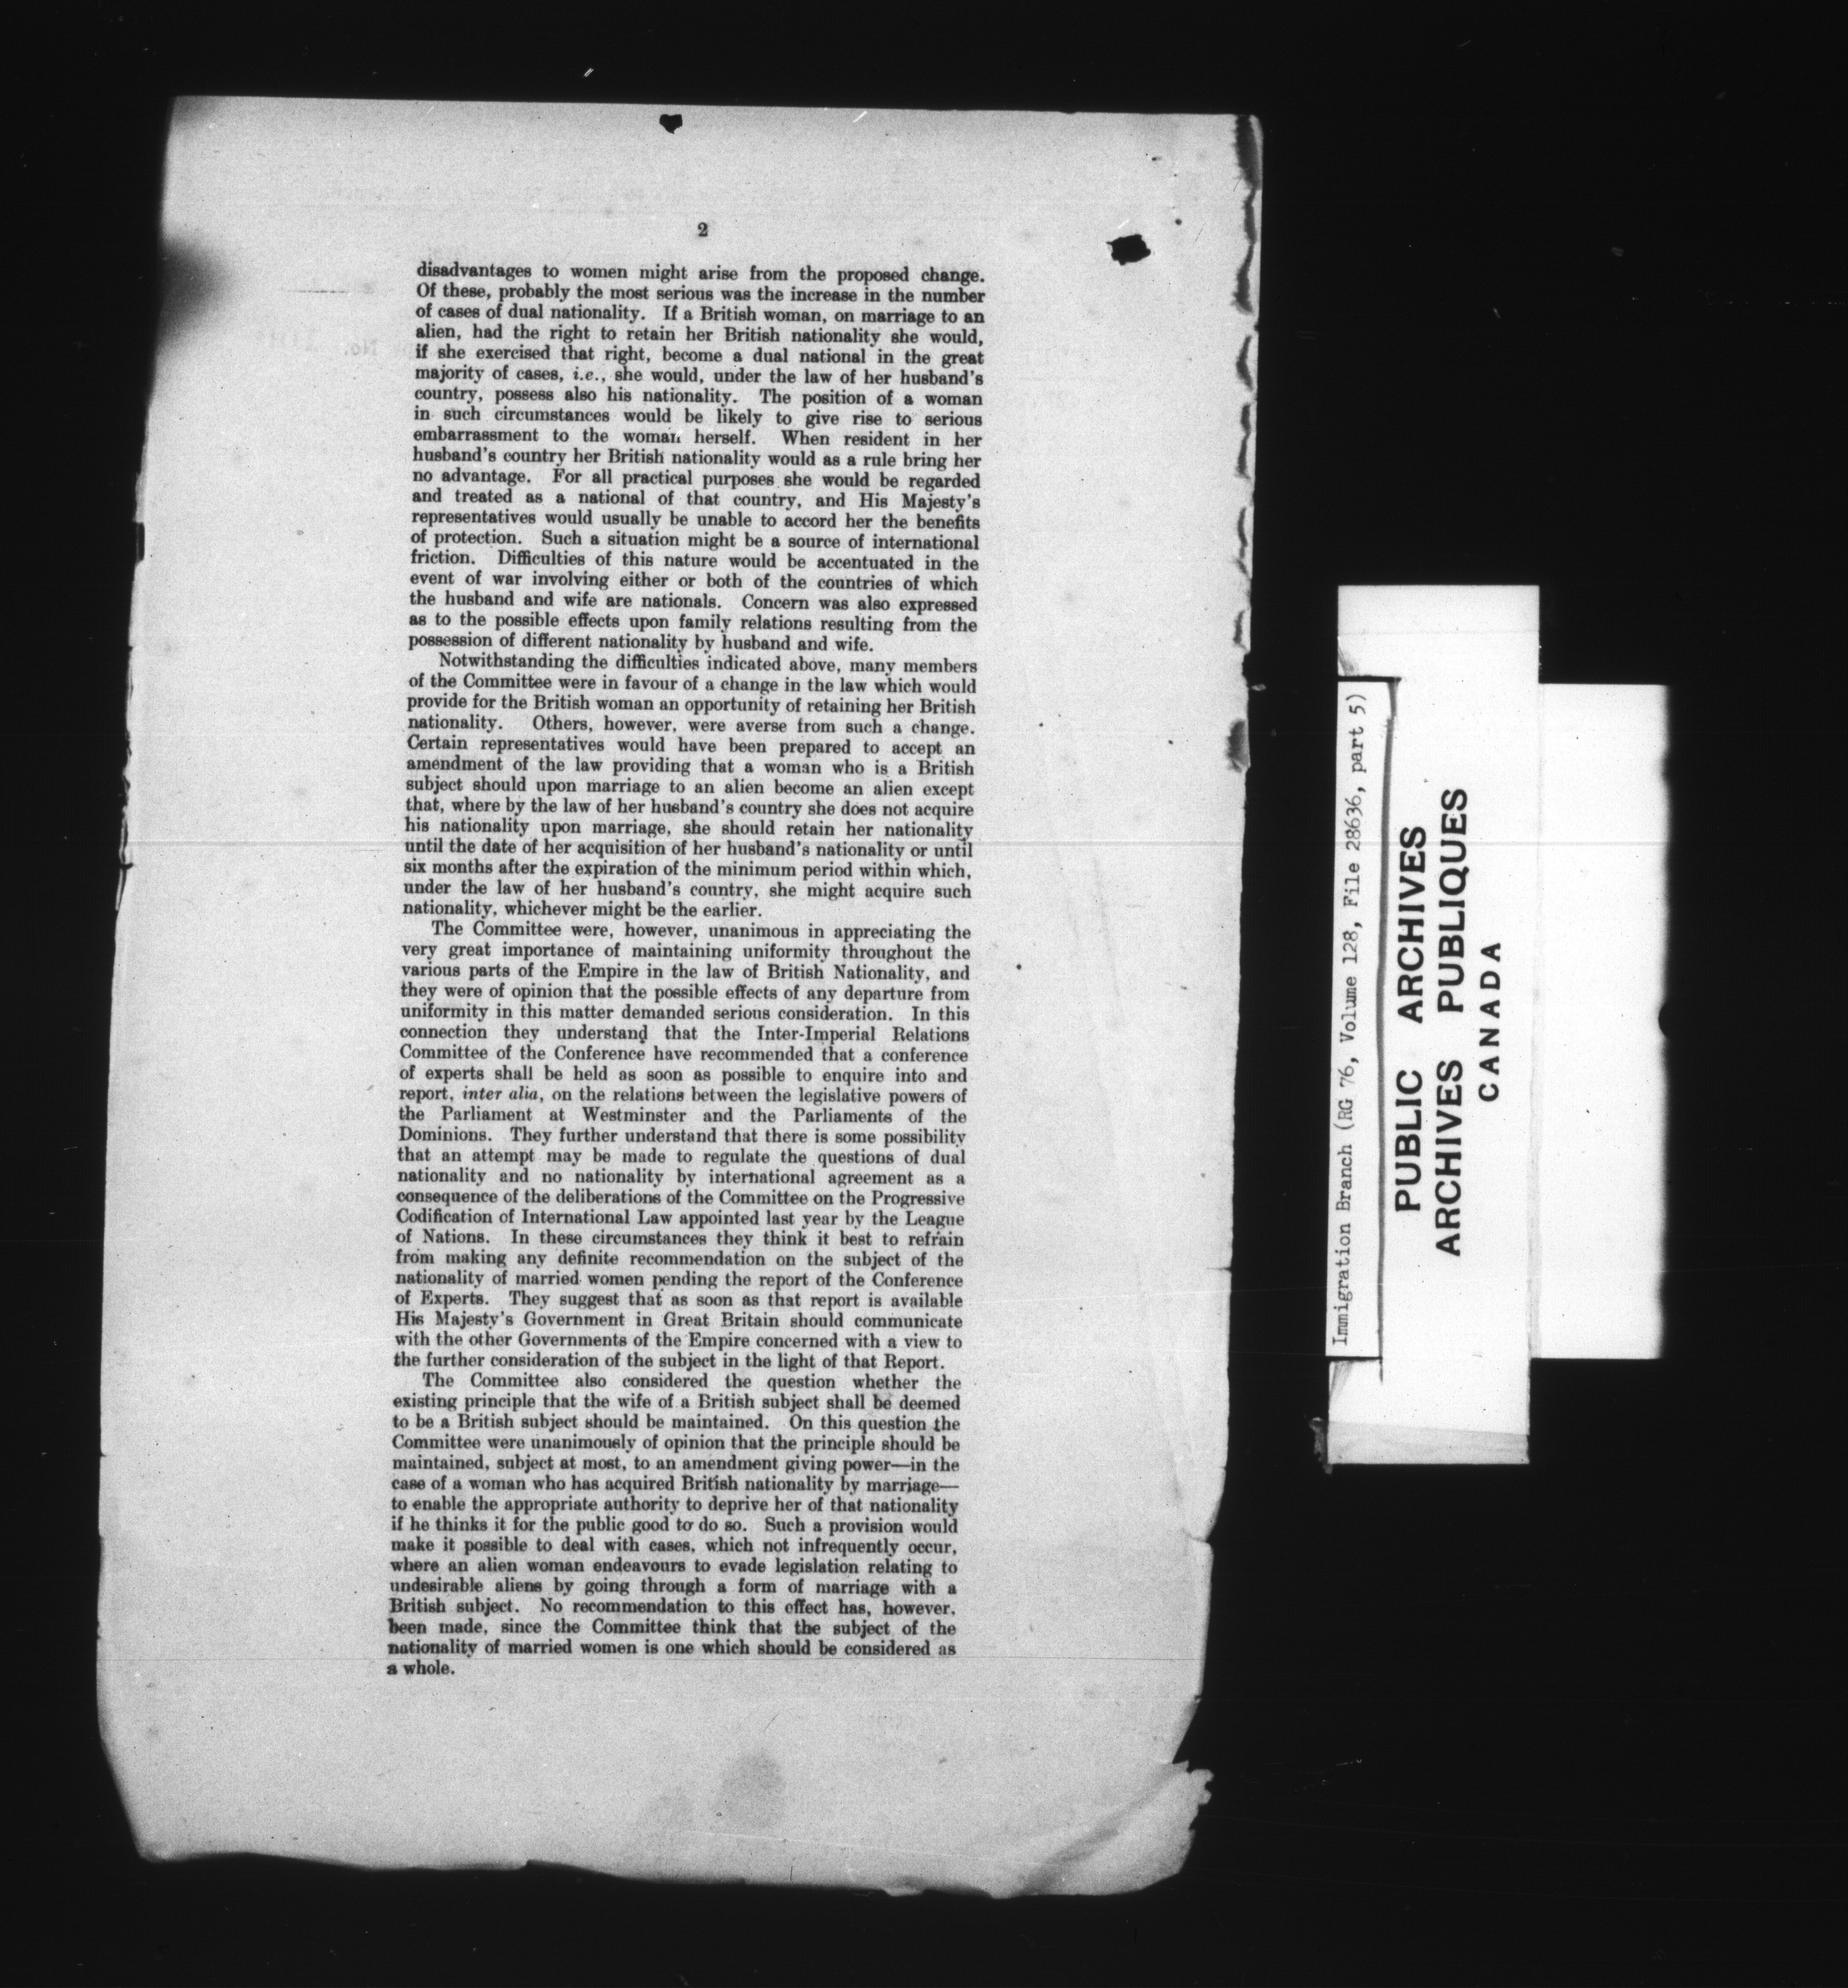 2
disadvantages to women might arise from the proposed change.
Of these, probably the most serious was the increase in the number
of cases of dual nationality. If a British woman, on marriage to an
alien, had the right to retain her British nationality she would,
if she exercised that right, become a dual national in the great
majority of cases, i.e., she would, under the law of her husband's
country, possess also his nationality. The position of a woman
in such circumstances would be likely to give rise to serious
embarrassment to the woman herself. When resident in her
husband's country her British nationality would as a rule bring her
no advantage. For all practical purposes she would be regarded
and treated as a national of that country, and His Majesty's
representatives would usually be unable to accord her the benefits
of protection. Such a situation might be a source of international
friction. Difficulties of this nature would be accentuated in the
event of war involving either or both of the countries of which
the husband and wife are nationals. Concern was also expressed
as to the possible effects upon family relations resulting from the
possession of different nationality by husband and wife.
Notwithstanding the difficulties indicated above, many members
of the Committee were in favour of a change in the law which would
provide for the British woman an opportunity of retaining her British
nationality. Others, however, were averse from such a change.
Certain representatives would have been prepared to accept an
amendment of the law providing that a woman who is a British
subject should upon marriage to an alien become an alien except
that, where by the law of her husband's country she does not acquire
his nationality upon marriage, she should retain her nationality
until the date of her acquisition of her husband's nationality or until
six months after the expiration of the minimum period within which,
under the law of her husband's country, she might acquire such
nationality, whichever might be the earlier.
The Committee were, however, unanimous in appreciating the
very great importance of maintaining uniformity throughout the
various parts of the Empire in the law of British Nationality, and
they were of opinion that the possible effects of any departure from
uniformity in this matter demanded serious consideration. In this
connection they understand that the Inter-Imperial Relations
Committee of the Conference have recommended that a conference
of experts shall be held as soon as possible to enquire into and
report, inter alia, on the relations between the legislative powers of
the Parliament at Westminster and the Parliaments of the
Dominions. They further understand that there is some possibility
that an attempt may be made to regulate the questions of dual
nationality and no nationality by international agreement as a
consequence of the deliberations of the Committee on the Progressive
Codification of International Law appointed last year by the League
of Nations. In these circumstances they think it best to refrain
from making any definite recommendation on the subject of the
nationality of married women pending the report of the Conference
of Experts. They suggest that as soon as that report is available
His Majesty's Government in Great Britain should communicate
with the other Governments of the Empire concerned with a view to
the further consideration of the subject in the light of that Report.
The Committee also considered the question whether the
existing principle that the wife of a British subject shall be deemed
to be a British subject should be maintained. On this question the
Committee were unanimously of opinion that the principle should be
maintained, subject at most, to an amendment giving power—in the
case of a woman who has acquired British nationality by marriage—
to enable the appropriate authority to deprive her of that nationality
if he thinks it for the public good to do so. Such a provision would
make it possible to deal with cases, which not infrequently occur,
where an alien woman endeavours to evade legislation relating to
undesirable aliens by going through a form of marriage with a
British subject. No recommendation to this effect has, however,
been made, since the Committee think that the subject of the
nationality of married women is one which should be considered as
a whole.
Immigration Branch (RG 76, Volume 128, File 28636, part 5)
PUBLIC ARCHIVES
ARCHIVES PUBLIQUES
CANADA